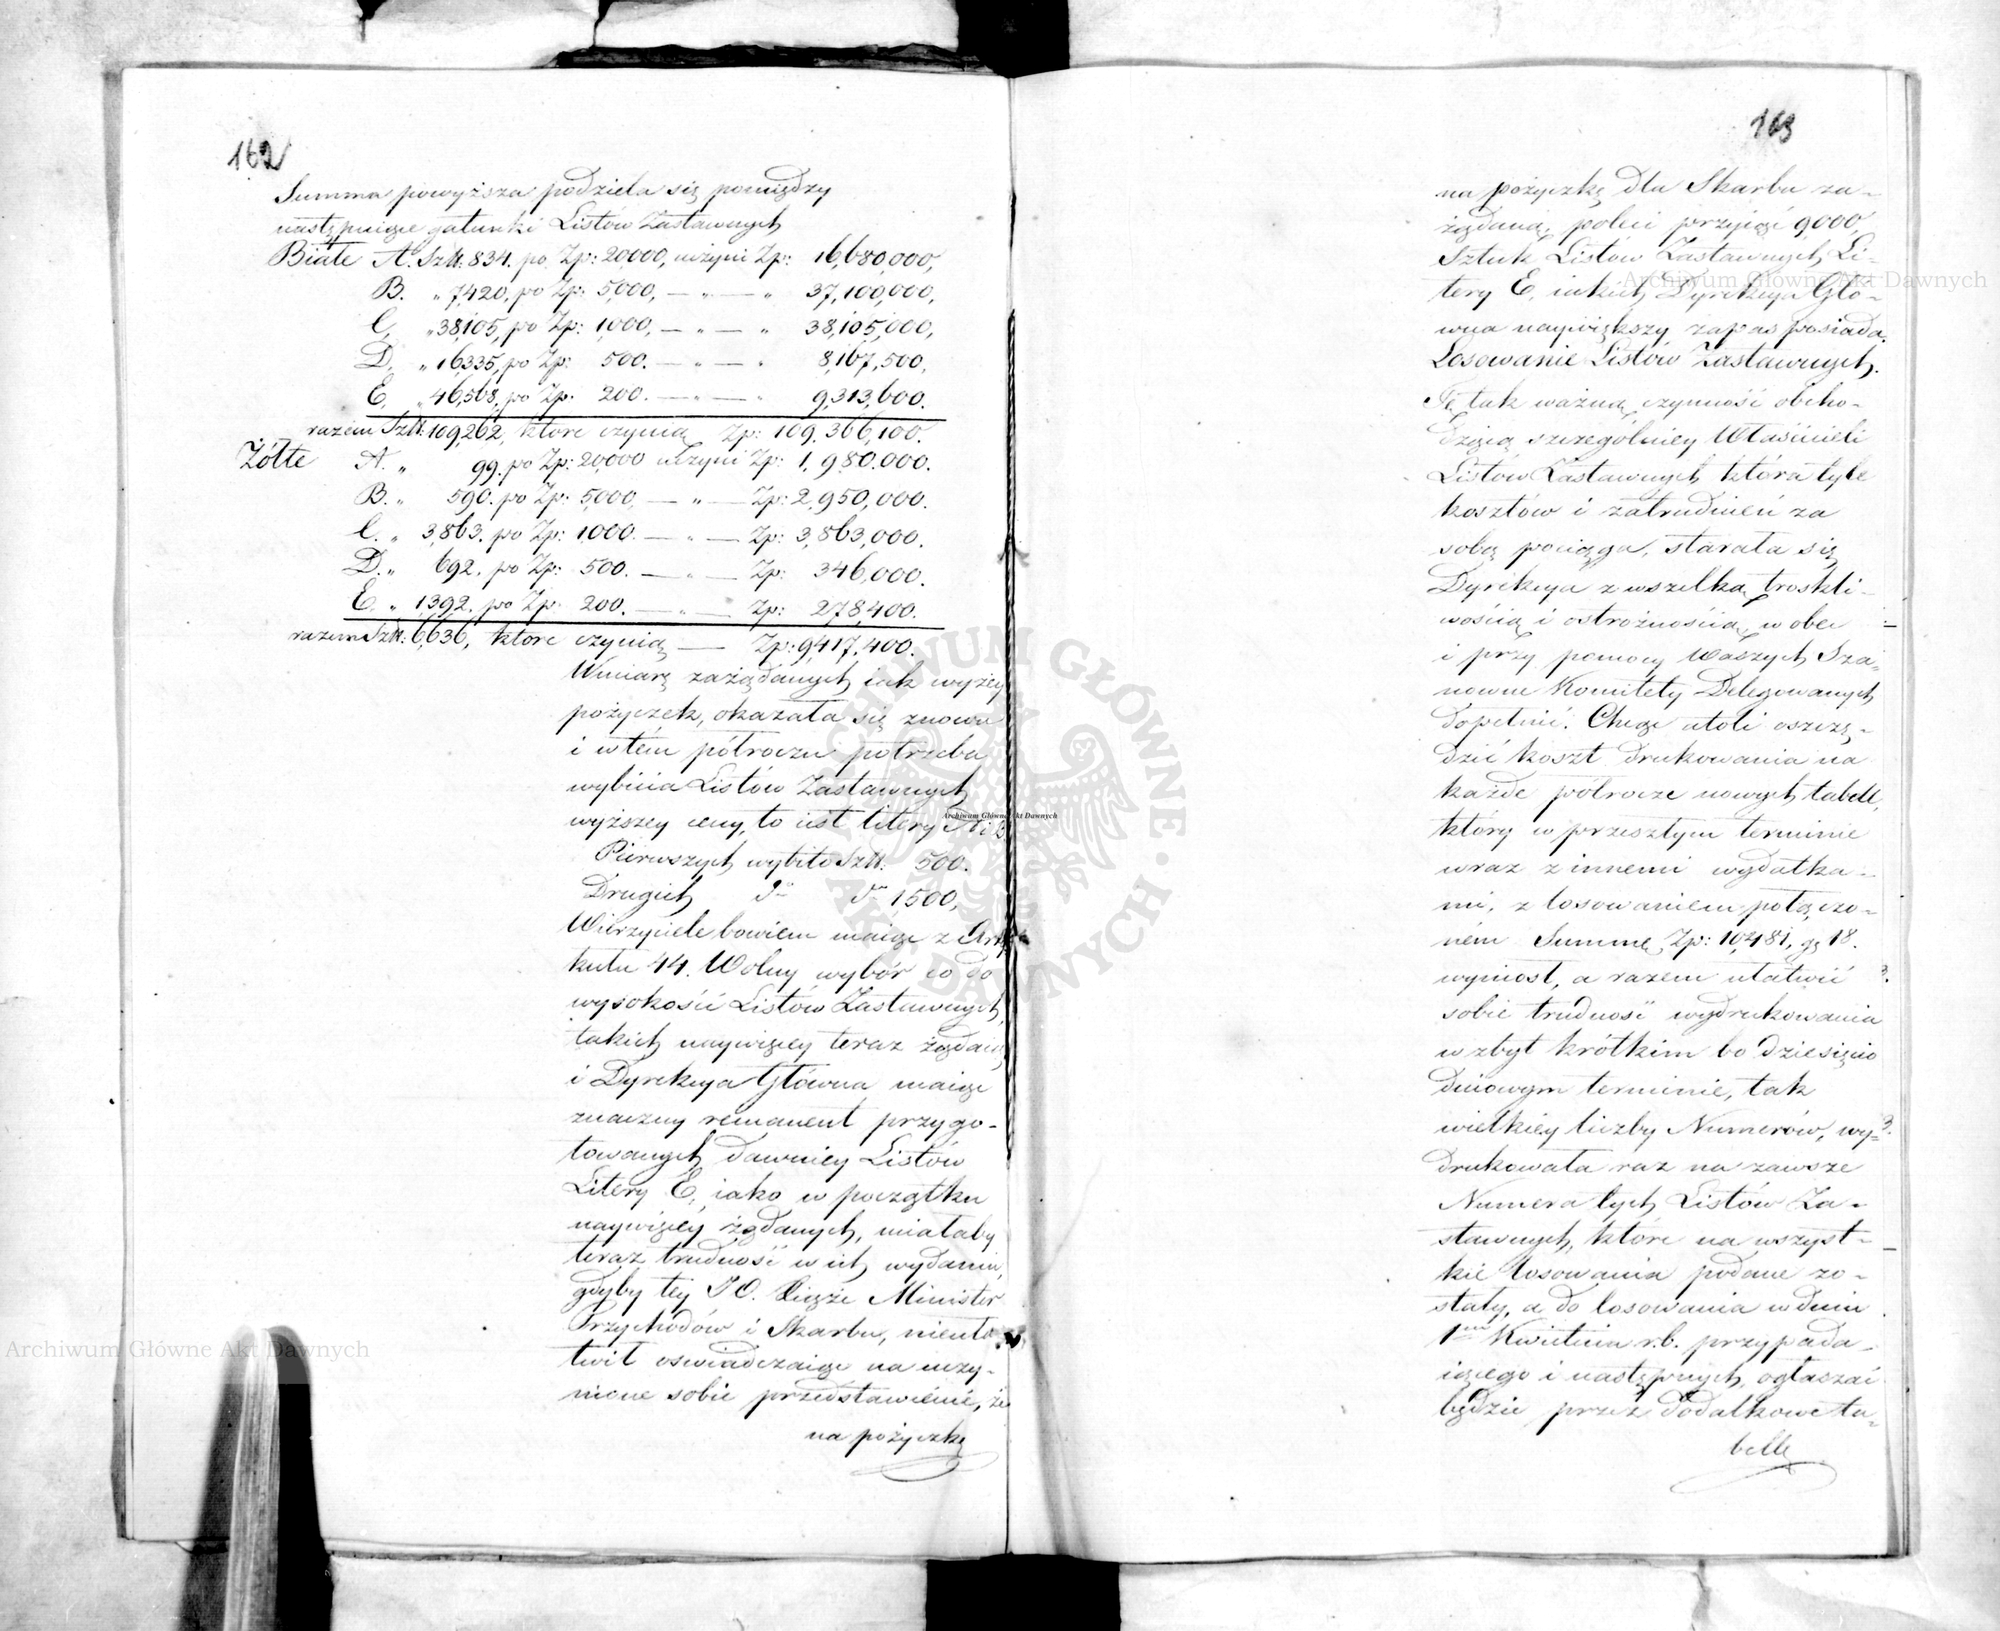 162
Summa powyższa podziela się pomiędzy
następuiące gatunki Listów Zastawnych
Białe A. Szt: 834. po Zp: 20,000, uczyni Zp: 16,680,000,
B. „ 7,420, po Zp: 5,000, — „ — „ 37,100,000,
C, „ 38,105, po Zp: 1,000, — „ — „ 38,105,000,
D, „ 16,335, po Zp: 500. — „ — „ 8,167,500,
E, „ 46,568, po Zp: 200. — „ — „ 9,313,600.
razem Szt: 109,262, które czynią Zp: 109,366,100.
Żółte A. „ 99. po Zp: 20,000 uczyni Zp: 1,980.000.
B. „ 590. po Zp: 5,000, — „ — Zp: 2,950,000.
C. „ 3,863. po Zp: 1,000. — „ — Zp: 3,863,000.
D. „ 692. po Zp: 500. — „ — Zp: 346,000.
E. „ 1,392. po Zp: 200. — „ — Zp: 278,400.
razem Szt: 6,636, które czynią — Zp: 9,417,400.
W miarę zażądanych iak wyżey
pożyczek, okazała się znowu
i w tém półroczu potrzeba
wybicia Listów Zastawnych
wyższey ceny, to iest litery A i B
Pierwszych wybito Szt: 500.
Drugich do do 1,500,
Wierzyciele bowiem maiąc z Arty
kułu 44. Wolny wybór co do
wysokości Listów Zastawnych,
takich naywięcey teraz żądaią,
i Dyrekcya Główna maiąc
znaczny remanent przygo-
towanych dawniey Listów
Litery E, iako w początku
naywięcey żądanych, miałaby
teraz trudność w ich wydaniu,
gdyby tey JO. Xiąże Minister
Przychodów i Skarbu, nieuła
twił oświadczaiąc na uczy-
nione sobie przedstawienie, że
na pożyczkę
163
na pożyczkę dla Skarbu za-
żądaną, poleci przyiąć 9,000,
Sztuk Listów Zastawnych Li-
tery E, iakich Dyrekcya Głó-
wna naywiększy zapas posiada.
Losowanie Listów Zastawnych.
Tę tak ważną czynność obcho-
dzącą szczególniey Właścicieli
Listów Zastawnych która tyle
kosztów i zatrudnień za
sobą pociąga, starała się
Dyrekcya z wszelką troskli-
wością i ostrożnością w obec
i przy pomocy Waszych Sza-
nowne Komitety Delegowanych
dopełnić. Chcąc atoli oszczę-
dzić koszt drukowania na
każde półrocze nowych tabell,
który w przeszłym terminie
wraz z innemi wydatka-
mi, z losowaniem połączo-
ném Summę Zp: 10,481, gr 18.
wyniosł, a razem ułatwić
sobie trudność wydrukowania
w zbyt krótkim bo dziesięcio
dniowym terminie, tak
wielkiey liczby Numerów, wy-
drukowała raz na zawsze
Numera tych Listów Za-
stawnych, które na wszyst-
kie losowania podane zo-
stały, a do losowania w dniu
1go Kwietnia r.b. przypada-
iącego i następnych, ogłaszać
będzie przez dodatkowe ta-
bellę
Archiwum Główne Akt Dawnych
Archiwum Główne Akt Dawnych
Archiwum Główne Akt Dawnych
ARCHIWUM GŁÓWNE · AKT DAWNYCH ·